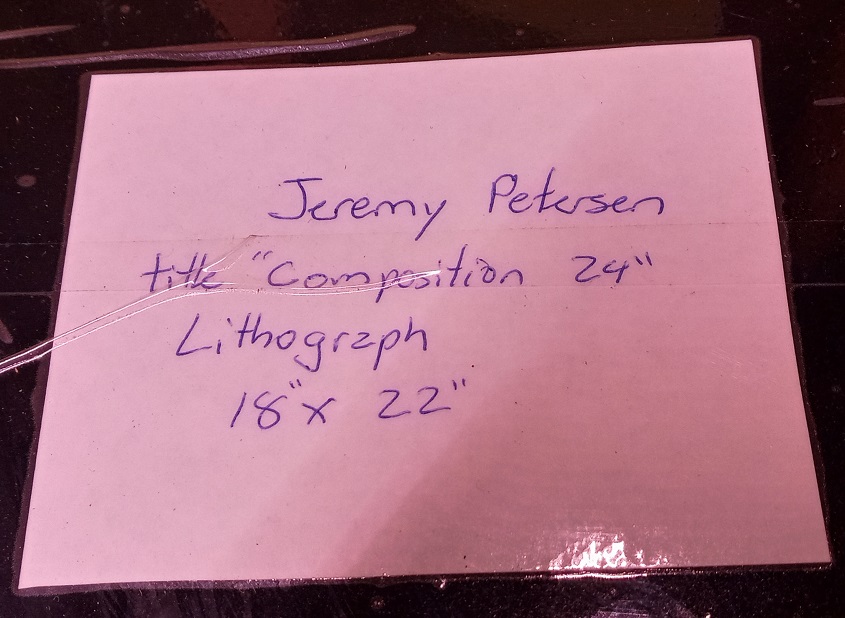 Jeremy Petersen
title "Composition 24"
Lithograph
18" x 22"